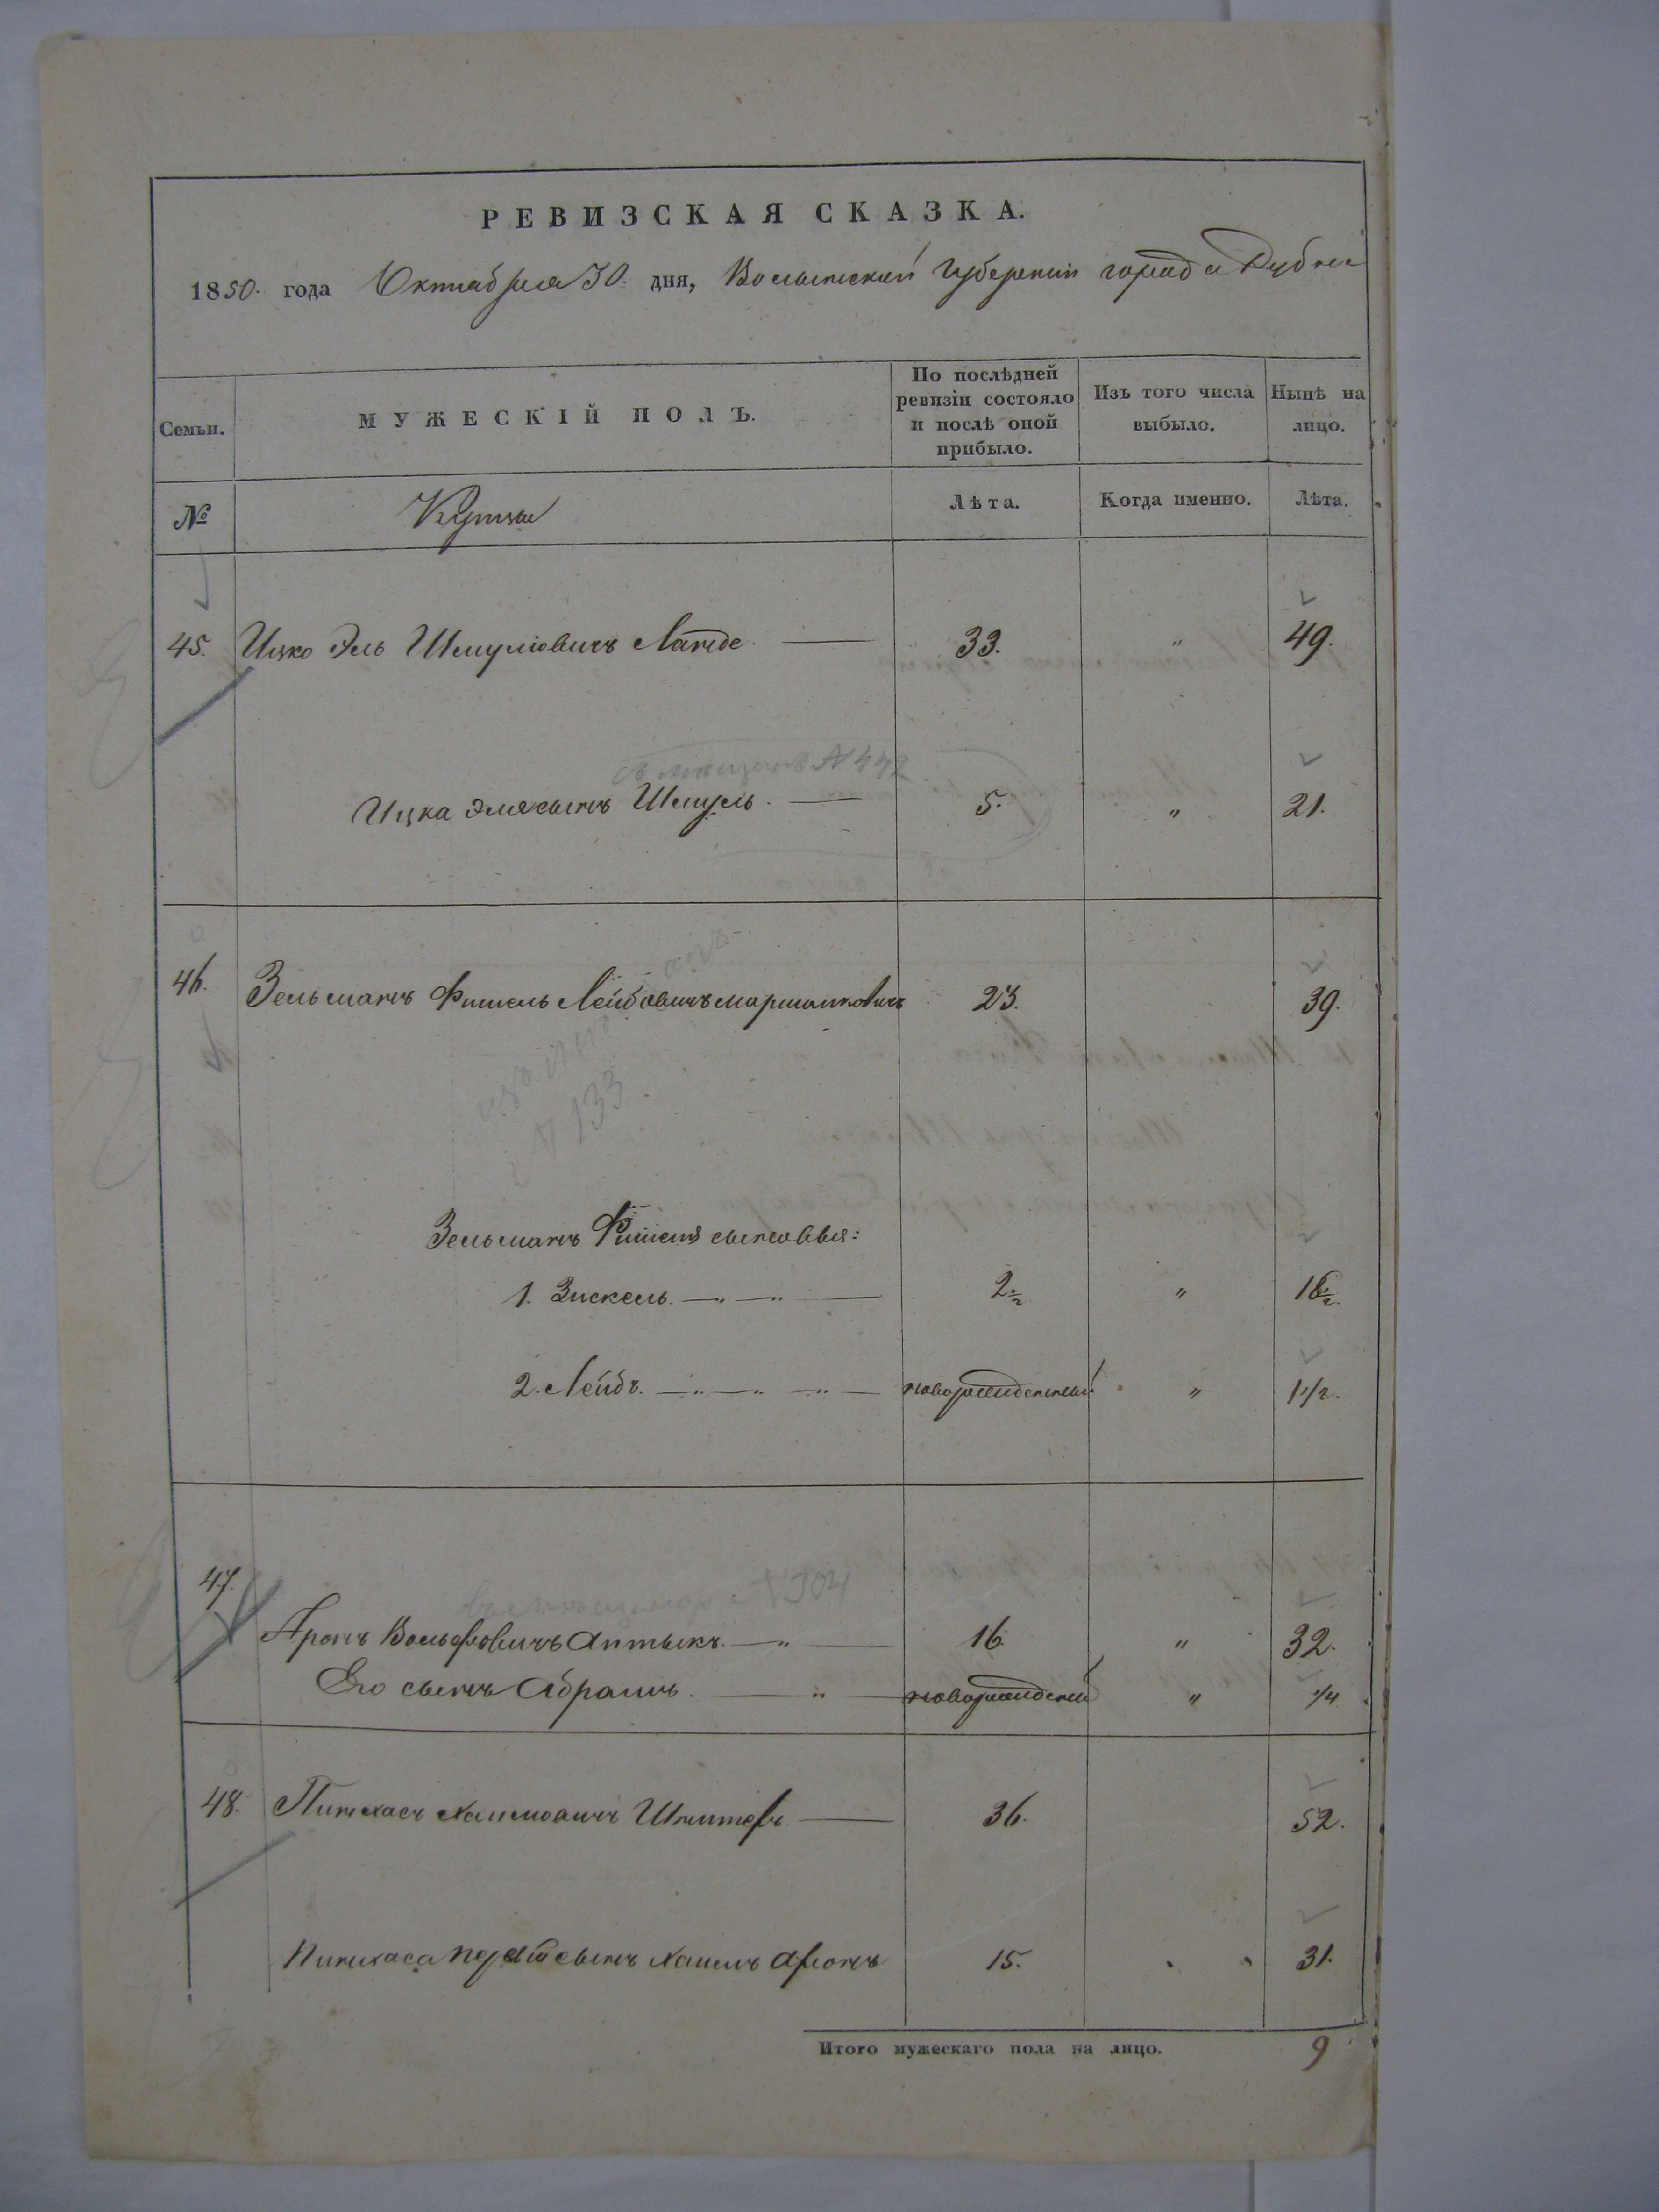 РЕВИЗСКАЯ СКАЗКА.
1850. года Октября 30. дня, Волынской Губернии города Дубно
Семьи.
МУЖЕСКІЙ ПОЛЪ.
По послѣдней ревизіи состояло и послѣ оной прибыло.
Изъ того числа выбыло.
Нынѣ на лицо.
№ Купцы Лѣта. Когда именно. Лѣта.
45. Ицко Эль Шмулiовичъ Ланде 33. " 49.
№ 442
Ицка Эля сынъ Шмуль. 5. " 21.
46. Зельманъ Фишель Лейбовичъ Маршалковичъ 23. 39.
№ 133
Зельманъ Фишеля сыновья:
1. Зискель. 2 1/2 " 18 1/2.
2. Лейбъ. новорожденный " 1 1/2.
47.
№ 304
Аронъ Вольфовичъ Аптыкъ. 16. " 32.
Его сынъ Абрамъ. новорожденный " 1/4
48. Пинхасъ Хаимовичъ 36. 52.
Пинхаса сынъ Хаимъ Аронъ 15. " 31.
Итого мужескаго пола на лицо. 9